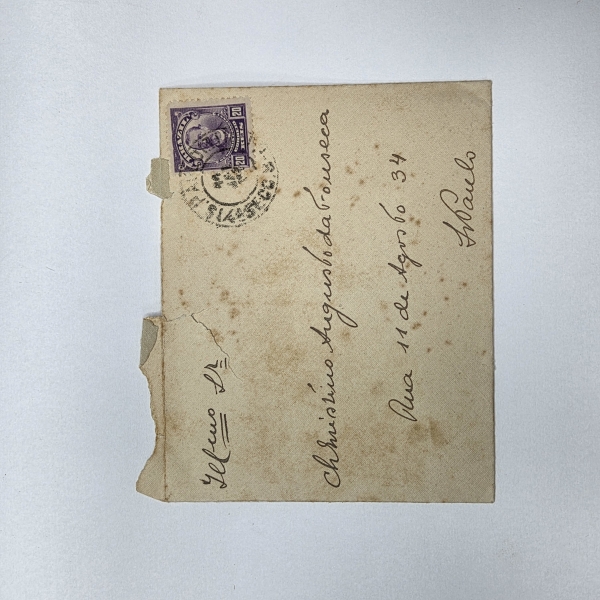 Illmo Sr.
Christino Augusto da Fonseca
Rua 11 de Agosto 34
S. Paulo
20 20